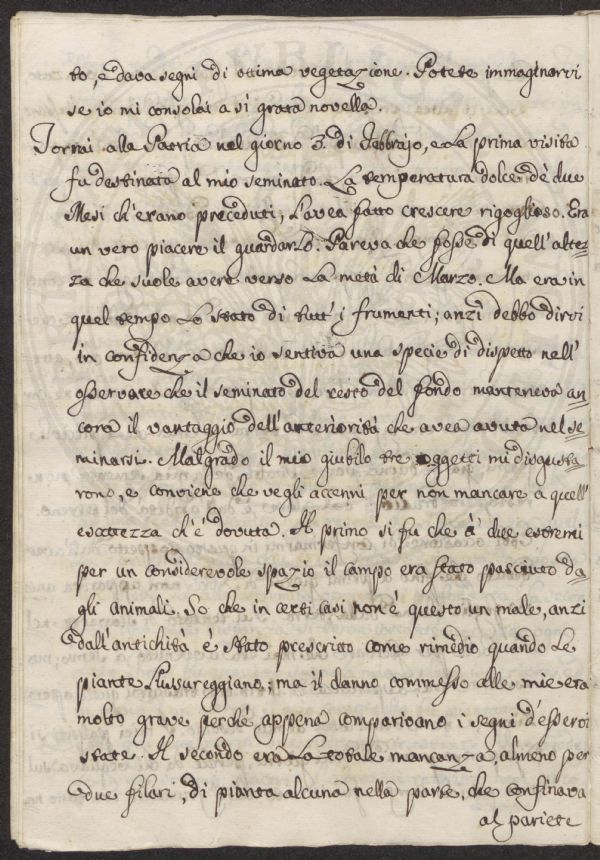 to, e dava segni di ottima vegetazione. Potete immaginarvi
se io mi consolai a sì grata novella.
Tornai alla Patria nel giorno 3. di Febbrajo, e la prima visita
fu destinata al mio seminato. La temperatura dolce de' due
Mesi ch'erano preceduti, l'avea fatto crescere rigoglioso. Era
un vero piacere il guardarlo. Pareva che fosse di quell'altez=
za che suole avere verso la metà di Marzo. Ma era in
quel tempo lo stato di tutt'i frumenti; anzi debbo dirvi
in confidenza che io sentiva una specie di dispetto nell'
osservare che il seminato del resto del fondo manteneva an=
cora il vantaggio dell'anteriorità che avea avuta nel se=
minarsi. Malgrado il mio giubilo tre oggetti mi disgusta=
rono, e conviene che vegli accenni per non mancare a quell'
esattezza ch'è dovuta. Il primo si fu che a' due estremi
per un considerevole spazio il campo era stato pasciuto da=
gli animali. So che in certi casi non è questo un male, anzi
dall'antichità è stato prescritto come rimedio quando le
piante lussureggiano; ma il danno commesso alle mie era
molto grave perché appena comparivano i segni d'esservi
state. Il secondo era la totale mancanza, almeno per
due filari, di pianta alcuna nella parte, che confinava
al pariete